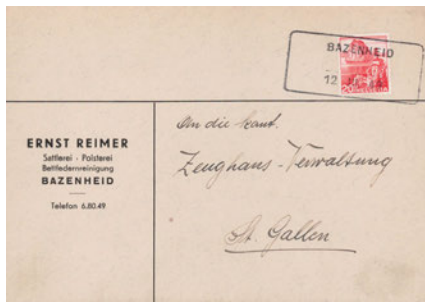 BAZENHEID
12
20 HELVETIA
ERNST REIMER
Sattlerei - Polsterei
Bettfedernreinigung
BAZENHEID
Telefon 6.80.49
An die kant.
Zeughaus-Verwaltung
St. Gallen